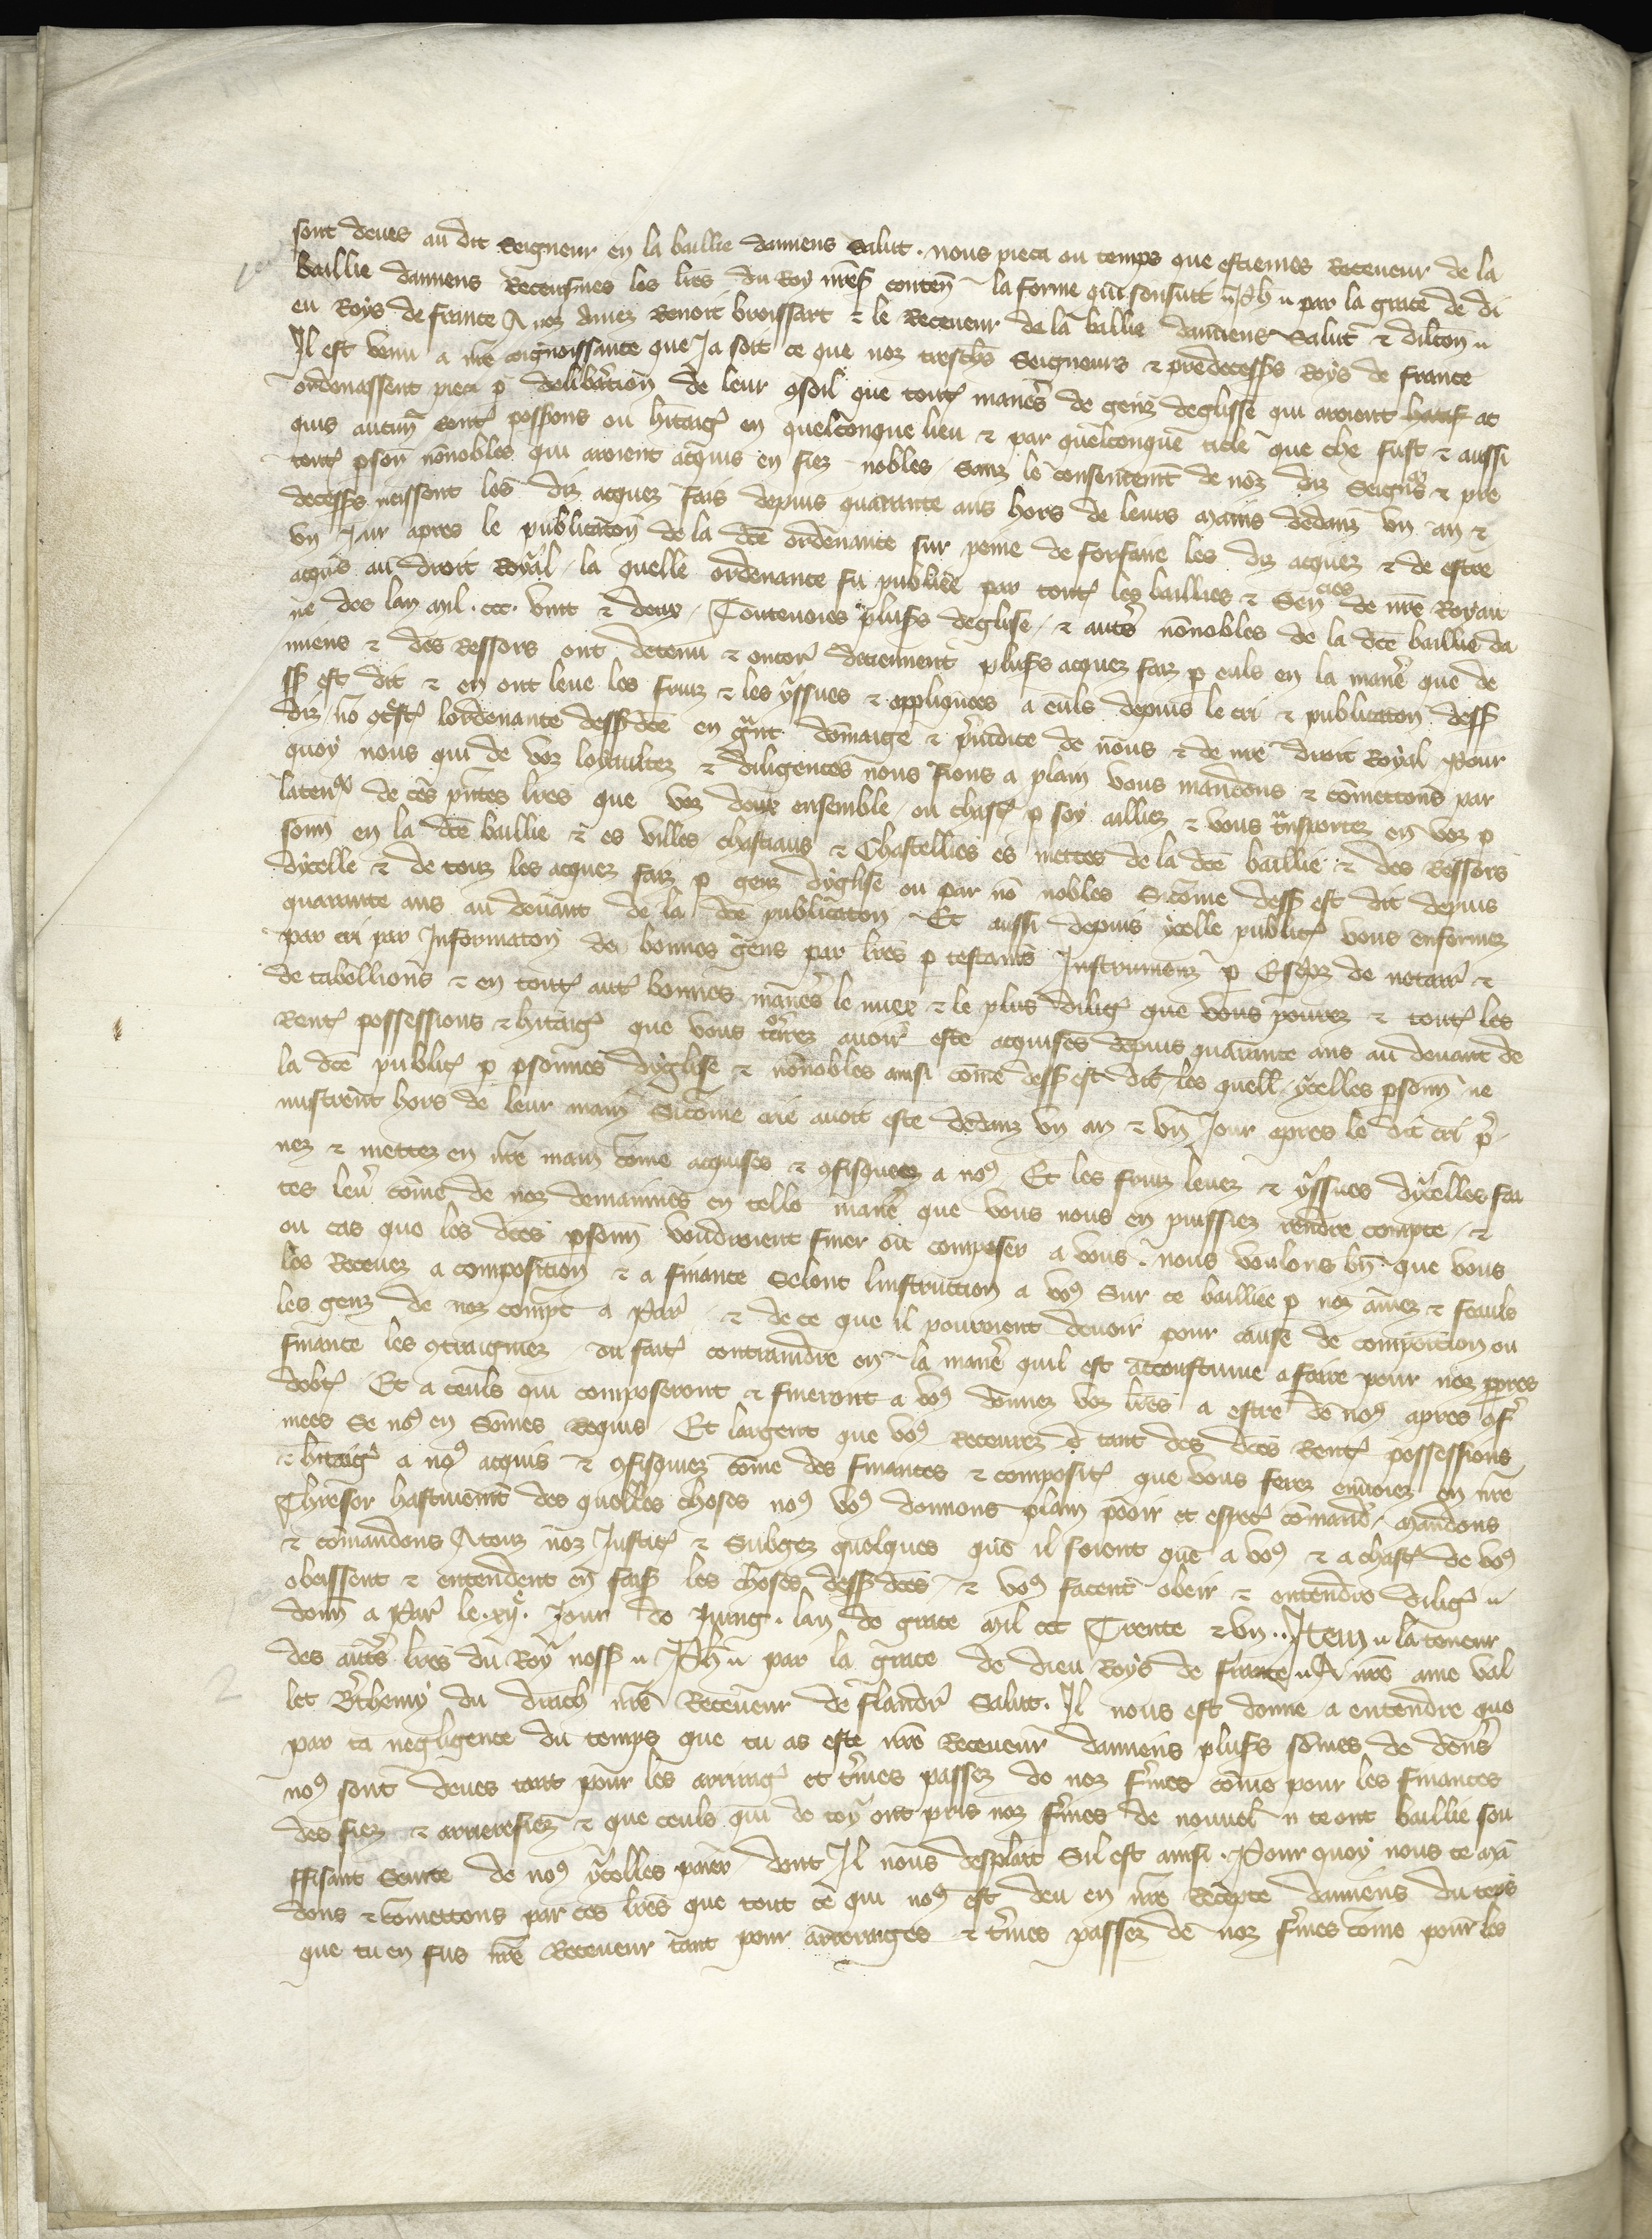 sont deues au dit Seigneur en la baillie damiens Salut. nous pieca ou temps que estiemes Receueur de la
baillie damiens Receusmes les lrēs du Roy nr̄eſ conten̄ la forme qui sensuit // Ph̄ // par la grace de di
eu Roys de france A noz amez Renoit broissart ⁊ le Receueur de la baillie damiens Salut ⁊ dilcōn //
Il est venu a nr̄e cognoissance que Ja soit ce que noz treschrs Seigneurs ⁊ predecesſrs Roys de france
ordenassent pieca ꝑ deliberacion de leur ꝯseil que toutꝭ manieres de genz deglise qui auoient ac
quis aucunꝭ rentꝭ possions ou hitaigꝭ en quelconque lieu ⁊ par quelconque title que che fust ⁊ aussi
toutꝭ ꝑsoñ nōnobles qui auoient acquis en fiez nobles Sanz le consentemt de noz diz Seigneurs ⁊ pre
decessꝰs meissent les diz acquez fais depuis quarante ans hors de leurs mains dedanz vn an ⁊
vn Jour apres le publicacōn de la dcē ordenance sur peine de forfaire les diz acquez ⁊ de estre
acquis au droit Royal la quelle ordenance fu publiee par toutꝭ les baillies ⁊ Seneſcies de nr̄e Royau
me des lan mil .ccc. vint ⁊ deux, Toutenoies plusꝰs deglise, ⁊ autrēs nōnobles de la dcē baillie da
miens ⁊ des Ressors ont detenu ⁊ encorꝭ detiennent plusꝰs acquez faiz ꝑ euls en la manerē que de
ſꝰ est dit ⁊ en ont leue les fruiz ⁊ les yssues ⁊ appliquees a euls depuis le cri ⁊ publicacion dessꝰ
diz, nō ꝯtstꝭ lordenance dessꝰ dcē en grant domaige ⁊ preiudice de nous ⁊ de nr̄e droit Royal Pour
quoy nous qui de voz loyaultez ⁊ diligences nous fions a plain vous mandons ⁊ cōmettons par
la teneur de cēs prntes lrēs que voz deux ensemble, ou chascꝭ ꝑ soy ailliez ⁊ vous transportez en voz ꝑ
sonn en la dcē baillie ⁊ es villes chastiaus ⁊ Chastellies es mettes de la dcē baillie ⁊ des Ressors
dycelle ⁊ de touz les acquez faiz ꝑ genz dyglise ou par nō nobles Sicōme dessꝰ est dit depuis
quarante ans au deuant de la dcē publicacon Et aussi depuis ycelle publicꝭ vous enformez
par cri par Informacōn de bonnes gens par lrēs ꝑ testamēs Instrumenz ꝑ Escripz de notairꝭ ⁊
de tabellions ⁊ en toutꝭ autꝭ bonnes manierēs le miex ⁊ le plus diligꝭ que vous pourez ⁊ toutꝭ les
Rentꝭ possessions ⁊ hitaigꝭ que vous trouuerez auoir este acquises depuis quarante ans au deuant de
la dcē publicꝭ ꝑ ꝑsonnes dyglise ⁊ nōnobles ainsi cōme dessꝰ est dit, les quell ycelles ꝑsonn ne
mistrent hors de leur main Sicōme crie auoit este dedanz vn an ⁊ vn Jour apres le dit cri pre
nez ⁊ mettez en nr̄e main cōme acquises ⁊ ꝯfisquees a noꝰ Et les fruiz leuez ⁊ yssues dycelles fai
tes leuer cōme de noz demainnes en telle manierē que vous nous en puissiez rendre compte, ⁊
ou cas que les dcēs ꝑsonn voudroient finer ou composer a vous. nous voulons bn̄ que vous
les Receuez a composicion ⁊ a finance Selont linstruction a voꝰ Sur ce bailliee ꝑ noz amez ⁊ feauls
les genz de noz compt a Parꝭ ⁊ de ce que il pouroient deuoir pour cause de composicion ou
finance les ꝯtraigniez ou faitꝭ contraindre en la manierē quil est acoustume a faire pour noz ꝓpres
debtꝭ Et a ceuls qui composeront ⁊ fineront a voꝰ donnez voz lrēs a estre de noꝰ apres ꝯfꝭ
mees Se noꝰ en Sōmes Requis, Et largent que voꝰ Receurez d tant des dcēs Rentꝭ possessions
⁊ hitaigꝭ a noꝰ acquis ⁊ ꝯfisquiez cōme des finances ⁊ composicꝭ que vous ferez enuoiez en nr̄e
Thresor hastiuemt des quelles choses noꝰ voꝰ donnons plain pooir et especꝭ cōmand, Mandons
⁊ cōmandons A touz noz Justicꝭ ⁊ Subgez quelques que il soient que a voꝰ ⁊ a chascꝭ de voꝰ
obeissent ⁊ entendent en faisꝭ les choses dessꝰ dcēs, ⁊ voꝰ facent obeir ⁊ entendre diligꝭ //
donn a Parꝭ le .xijᵉ. Jour de Juing. lan de grace mil ccc Trente ⁊ vn.. Item // la teneur
des autrēs lrēs du Roy nossꝰ // Ph̄ // par la grace de dieu Roys de france // A nr̄e ame val
let Berthemy du drach nr̄e Receueur de flandrꝭ Salut. Il nous est donne a entendre que
par ta negligence du temps que tu as este nr̄e Receueur damiens plusꝰs sōmes de deners
noꝰ sont deues tant pour les arrieragꝭ et termes passez de noz fermes cōme pour les finances
des fiez ⁊ arrierefiez ⁊ que ceuls qui de toy ont pris noz fermes de nouuel n te ont baillie sou
ffisant Seurte de noꝰ ycelles paier dont Il nous desplait Sil est ainsi. Pour quoy nous te mā
dons ⁊ cōmettons par ces lrēs que tout ce qui noꝰ est deu en nr̄e Recepte damiens du tēps
que tu en fus nr̄e Receueur tant pour arrerages ⁊ termes passez de noz fermes cōme pour les